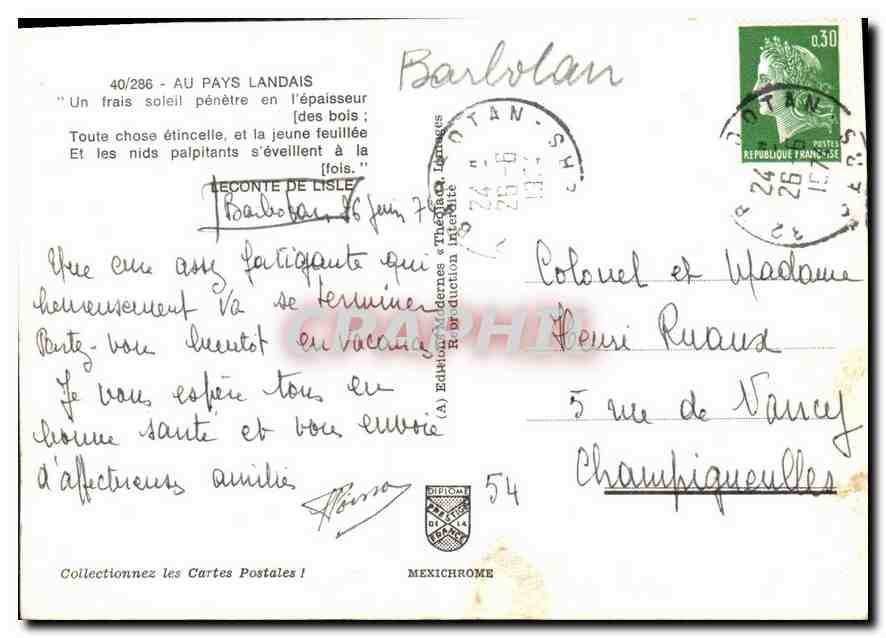 Barbotan
40/286 - AU PAYS LANDAIS
"Un frais soleil pénètre en l'épaisseur
[des bois ;
Toute chose étincelle, et la jeune feuillée
Et les nids palpitants s'éveillent à la
[fois."
LECONTE DE LISLE
Barbotan, 26 Juin 74
Une cure assez fatigante qui
heureusement va se terminer
Partez-vous bientôt en vacances
Je vous espère tous en
bonne santé et vous envoie
d'affectueuses amitiés
(A) Editions Modernes «Théojac», Limoges
Reproduction Interdite
0,30
POSTES
REPUBLIQUE FRANÇAISE
OTAN-
24
26-6
BOTAN-
24
26-6
32
Colonel et Madame
Henri Ruaux
5 rue de Nancy
Champigneulles
54
DIPLOME
PRESTIGE
DE LA
FRANCE
Collectionnez les Cartes Postales !
MEXICHROME
CRAPHI